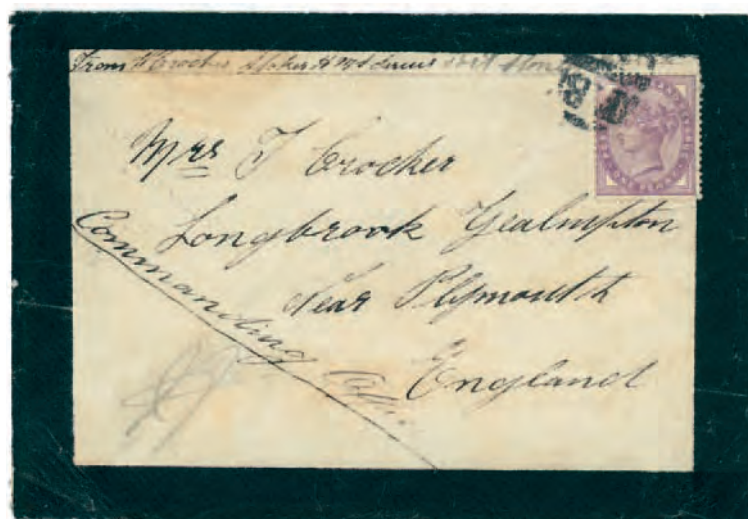 From Crocker Stoker HMS
Mrs T Crocker
Longbrook Yealmpton
Near Plymouth
England
Commanding
ONE PENNY